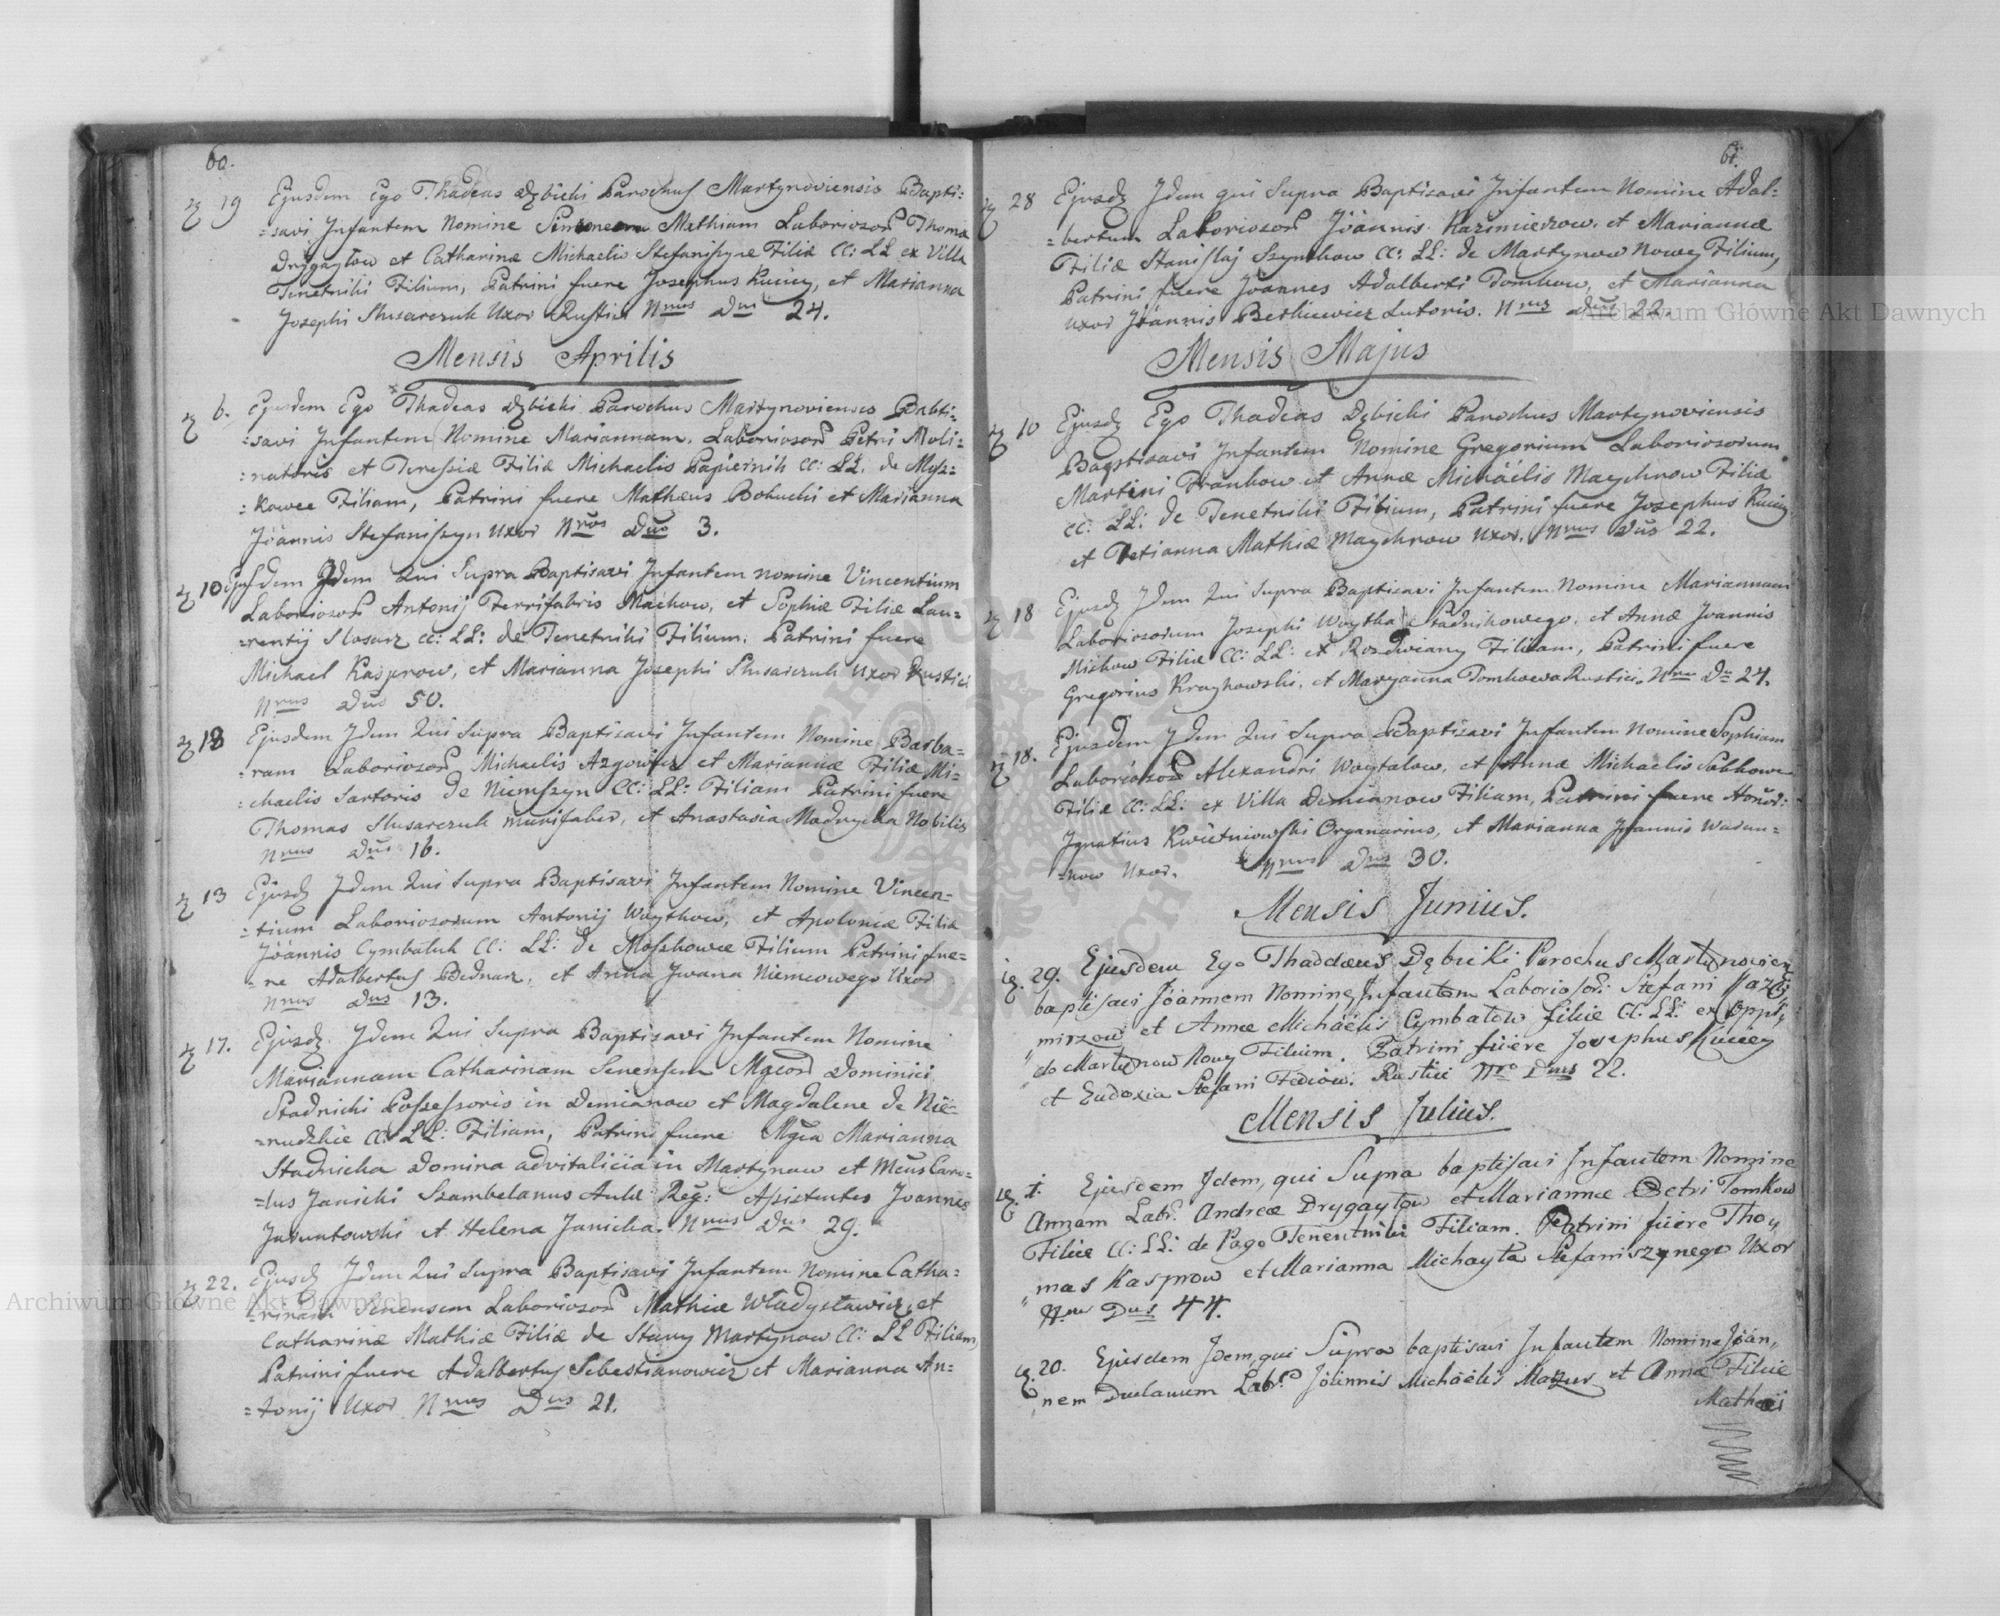 60.
19 Ejusdem Ego Thadeas Dębicki Parochus Martynoviensis Bapti:
=savi Infantem Nomine Simoneam Mathiam Laboriosor Thoma
Drygaytow et Catharinæ Michaelis Stefaniszyne Filiæ CC: LL ex Villa
Tenetniki Filium, Patrini fuere Josephus Kuciey, et Marianna
Josephi Slusarczuk Uxor Rustici Nrus Dus 24.
Mensis Aprilis
6. Ejusdem Ego Thadeas Dębicki Parochus Martynoviensis Babti:
=savi Infantem Nomine Mariannam. Laboriosor Petri Moli:
:natoris et Teressiæ Filiæ Michaelis Papiernik CC: LL: de Mysz:
:kowce Filiam, Patrini fuere Mathæus Bohucki et Marianna
Jöannis Stefaniszyn Uxor Nrus Dus 3.
10 Ejusdem Idem Qui Supra Baptisavi Infantem nomine Vincentium
Laboriosor Antonij Ferrifabris Machow, et Sophiæ Filiæ Lau=
=rentij Slosarz CC: LL: de Tenetniki Filium. Patrini fuere
Michael Kasprow, et Marianna Josephi Slusarczuk Uxor Rustici
Nrus Dus 50.
18 Ejusdem Idem Qui Supra Baptisavi Infantem Nomine Barba=
:ram Laboriosor Michaelis Azgowicz et Mariannæ Filiæ Mi=
:chaelis Sartoris de Niemszyn CC: LL: Filiam Patrini fuere
Thomas Slusarczuk murifaber, et Anastasia Madrycka Nobiles
Nrus Dus 16.
13 Ejusd Idem Qui Supra Baptisavi Infantem Nomine Vincen=
=tium Laboriosorum Antonij Woythow, et Apoloniæ Filiæ
Jöannis Cymbaluk CC: LL: de Moszkowce Filium Patrini fue=
=re Adalbertus Bednarz, et Anna Iwana Niemcowego Uxor
Nrus Dus 13.
17. Ejusd Idem Qui Supra Baptisavi Infantem Nomine
Mariannam Catharinam Senensem Mgcor Dominici
Stadnicki Possessoris in Demianow et Magdalene de Nie=
=rudzkie CC: LL: Filiam, Patrini fuere Mgca Marianna
Stadnicka Domina advitalicia in Martynow et Mcus Caro=
=lus Janicki Szambelanus Aulæ Reg: Asistentes Joannes
et Helena Janicka. Nrus Dus 29.
22. Ejusd Idem Qui Supra Baptisavi Infantem Nomine Catha=
=rinam Senensem Laboriosor Mathiæ Władysławicz, et
Catharinæ Mathiæ Filiæ de Stary Martynow CC: LL Filiam,
Patrini fuere Adalbertus Sebestianowicz et Marianna An=
=tonij Uxor Nrus Dus 21.
61.
28 Ejusd Idem qui Supra Baptisavi Infantem Nomine Adal=
=bertum Laboriosor Jöannis Kazimierzow. et Mariannæ
Filiæ Stanislaj Szymkow CC: LL: de Martynow Nowey Filium,
Patrini fuere Jöannes Adalberti Tomkow, et Marianna
uxor Jöannis Berkiewicz Lutoris. Nrus Dus 22.
Mensis Majus
10 Ejusd Ego Thadeas Dębicki Parochus Martynoviensis
Bapstisavi Infantem Nomine Gregorium Laboriosorum
Martini Frankow et Annæ Michäelis Maychrow Filiæ
CC: LL: de Tenetniki Filium, Patrini fuere Josephus Kuciey
et Tetianna Mathiæ Maychrow uxor. Nrus Dus 22.
18 Ejusd Idem Qui Supra Baptisavi Infantem Nomine Mariannam
Laboriosorum Josephi Woytka Stadnikowego. et Annæ Joannis
Mickow Filiæ CC: LL: ex Rozdwiany Filiam, Patrini fuere
Gregorius Kraykowski, et Maryanna Tomkowa Rustici. Nrus Ds 24.
18. Ejusdem Idem Qui Supra Baptisavi Infantem Nomine Sophiam
Laboriosor Alexandri Woytalow, et Annæ Michaelis Sobkowe
Filiæ CC: LL: ex Villa Demianow Filiam, Patrini fuere Honor:
Ignatius Kwietniowski Organarius, et Marianna Joannis Warun=
=now Uxor. Nrus Dus 30.
Mensis Junius.
29. Ejusdem Ego Thaddæus Dębicki Parochus Martynovien
baptisavi Jöannem Nomine Infantem Laboriosor: Stefani Kazi
mirzow et Annæ Michäelis Cymbalow filiæ CC: LL: ex Oppi
do Martynow Nowy Filium. Patrini füere Josephus Kuciey
et Eudoxia Stefani Fediow. Rustici Nro Dus 22.
Mensis Julius.
1. Ejusdem Idem, qui Supra baptisavi Infantem Nomine
Annam Labr. Andreæ Drygaytow et Mariannæ Petri Tomkow
Filiæ CC: LL: de Pago Tenentniki Filiam. Patrini füere Tho
mas Kasprow et Marianna Michayła Stefaniszynego Uxor
Nru Dus 44.
20. Ejusdem Idem, qui Supra baptisavi Infantem Nomine Jöan,
nem Labr. Jöannis Michäelis Mazur et Annæ Filiæ
Mathæi
Archiwum Główne Akt Dawnych
Archiwum Główne Akt Dawnych